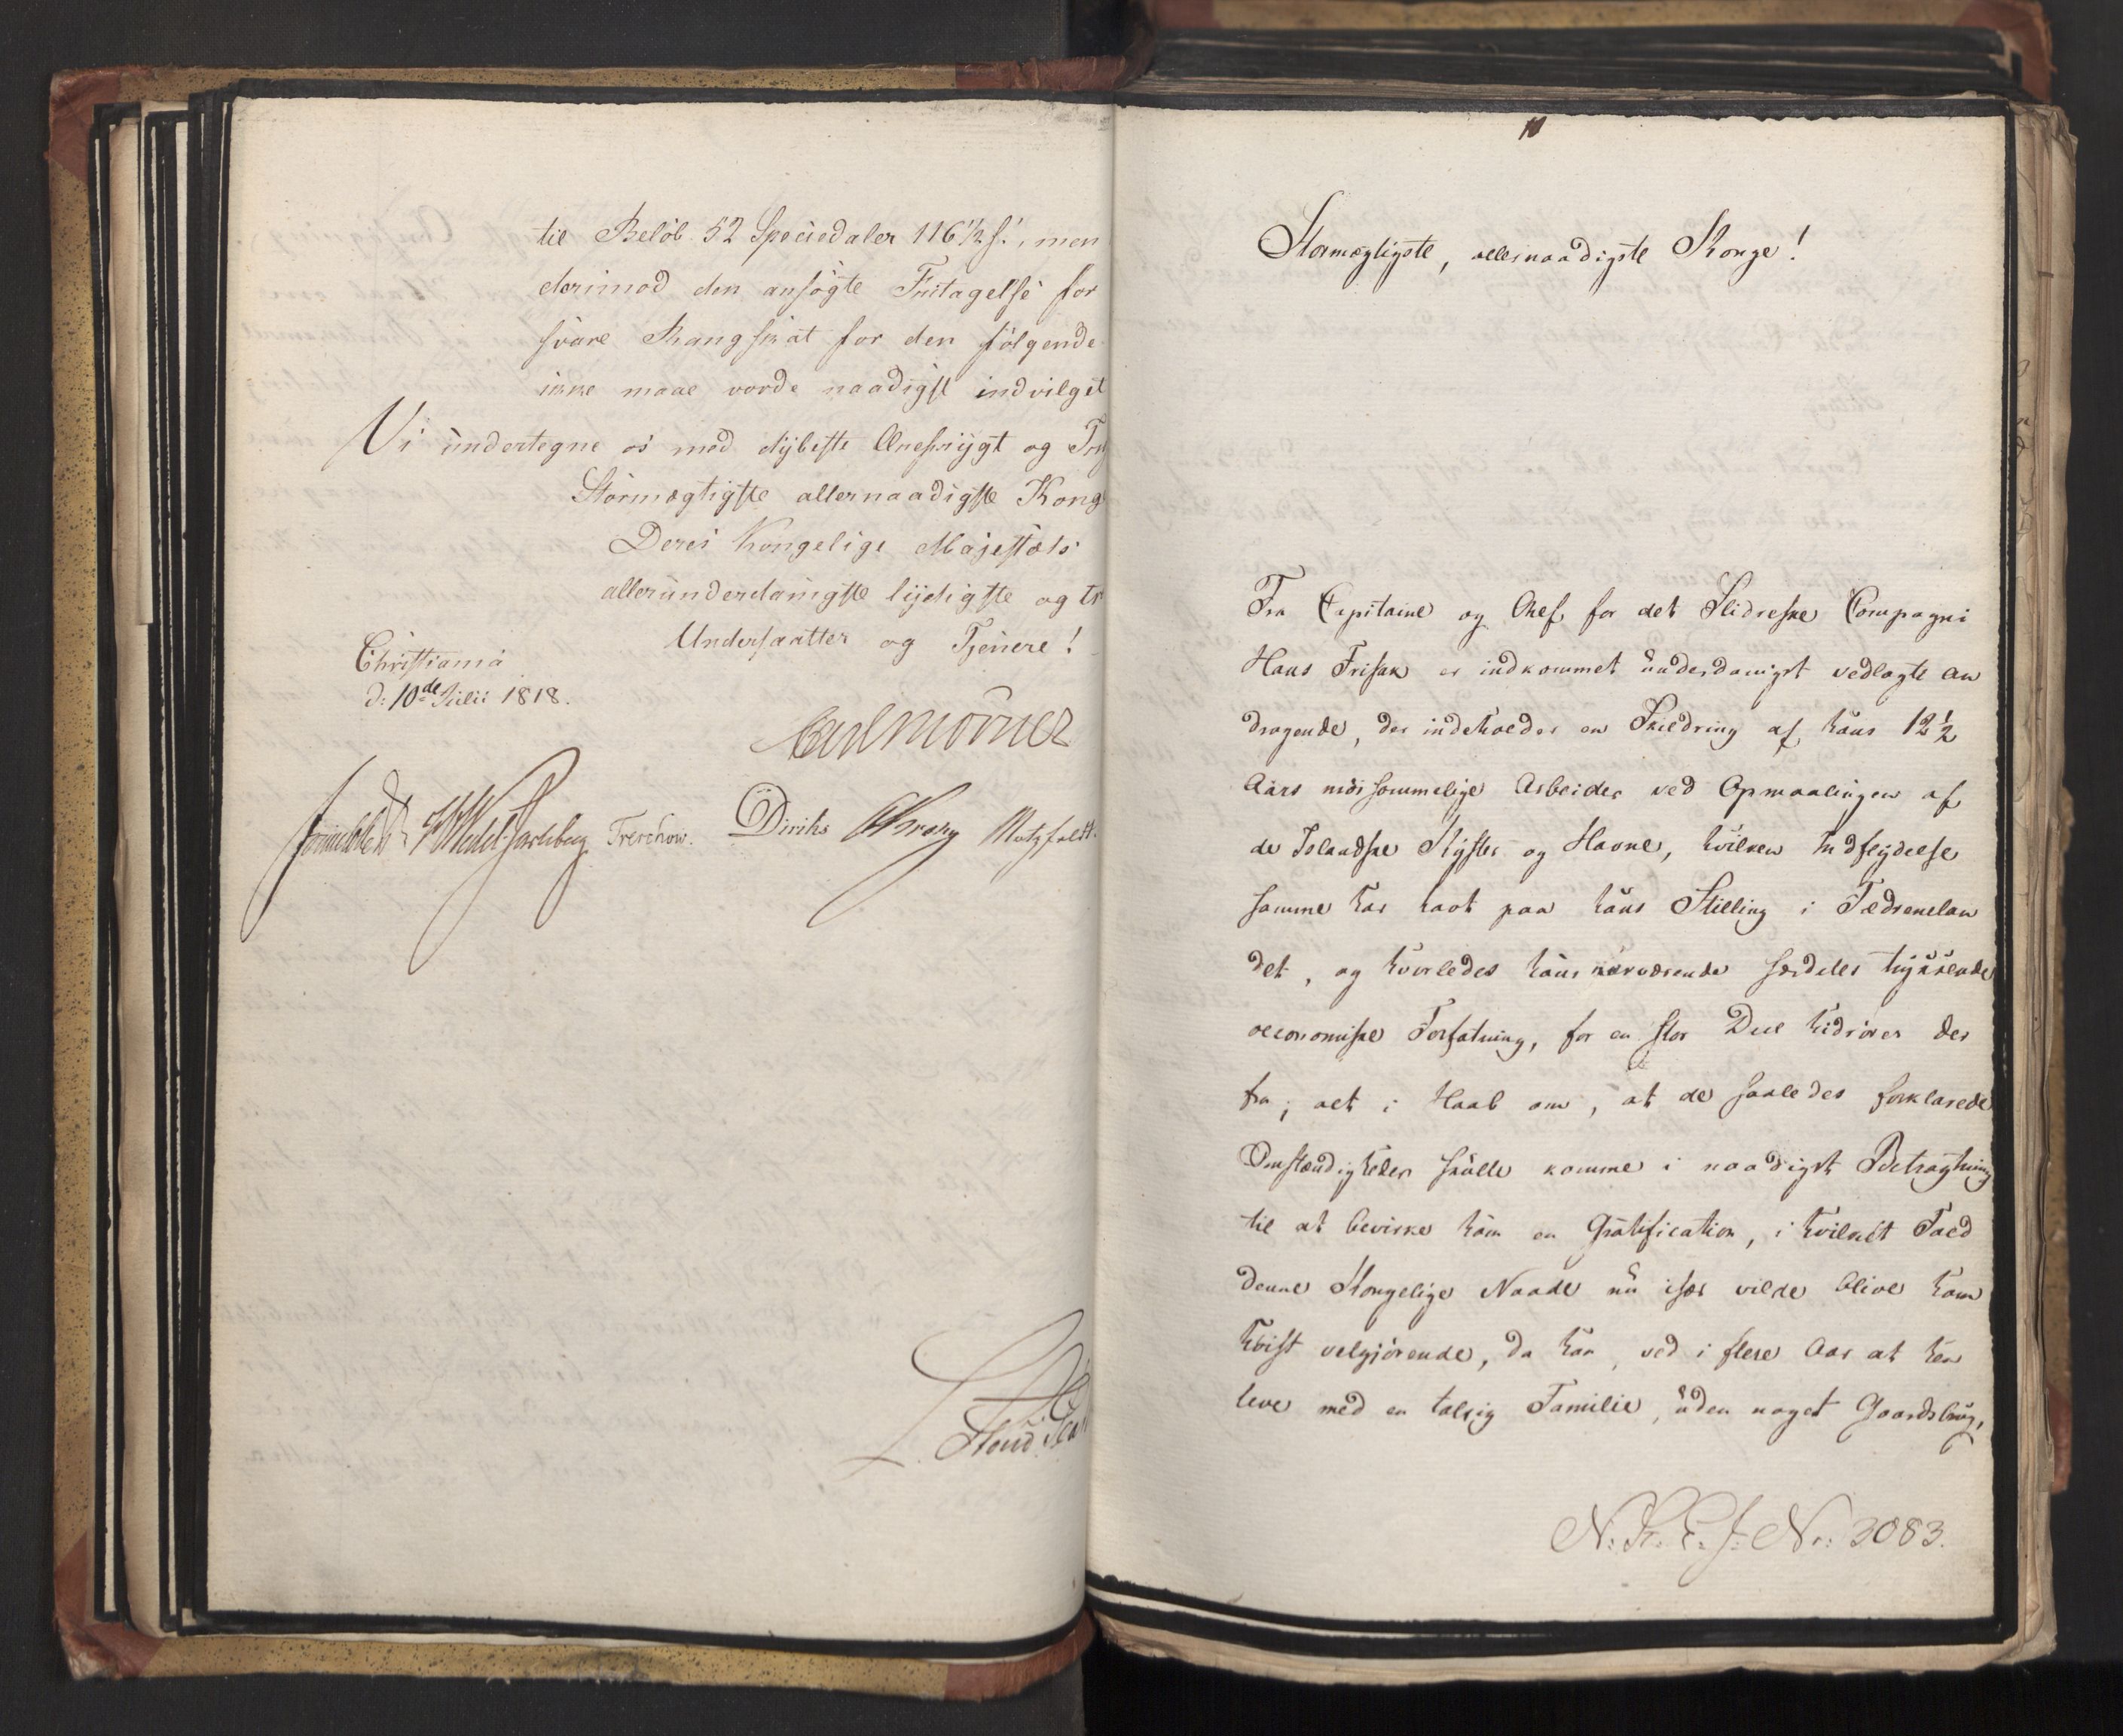 til Beløb 52 Speciedaler 116 1/2 s., men
derimod den ansøgte Fritagelse for
svare Rangskat for den følgende
ikke maae vorde naadigst indvilget
Vi undertegne os med dybeste Ærefrygt og
Stormægtigste allernaadigste Kong
Deres Kongelige Majestæts
allerunderdanigste lydigste og tr
Undersaatter og Tjenere!
Christiania
d: 10de Julii 1818.
Carl Mörner
Sommerhielm HWedel Jarlsberg Treschow. Diriks CKrohg Motzfeldt.
Stormægtigste, allernaadigste Konge!
Fra Capitaine og Chef for det Slidreske Compagni
Hans Frisak er indkommet underdanigst vedlagte an
dragende, der indeholder en Skildring af hans 12 1/2
Aars møissommelige Arbeider ved Opmaalingen af
de Islandske Kyster og Havne, hvilken Indflydelse
samme har havt paa hans Stilling i Fædrenelan
det, og hvorledes hans nærværende særdeles trykkende
oeconomiske Forfatning, for en stor Deel hidrører der
fra; alt i Haab om, at de saaledes forklarede
Omstændigheder skulle komme i naadigst Betragtning
til at bevirke ham en Gratification, i hvilket Fald
denne Kongelige Naade nu især vilde blive ham
høist velgjørende, da han, ved i flere Aar at hen
leve med en talrig Familie, uden noget Gaardsbrug,
N. R. C. J. No: 3083.